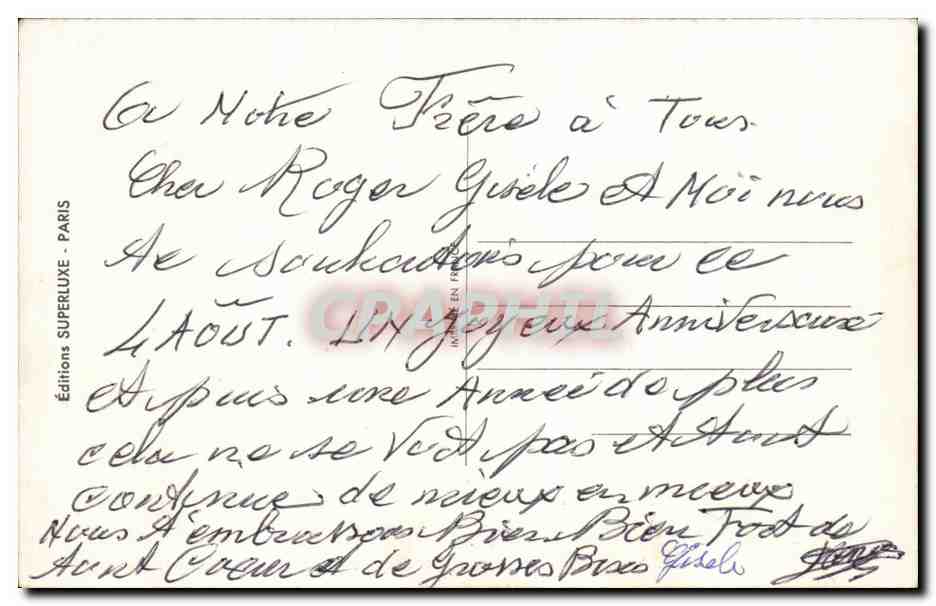 A Notre Frère à Tous
Cher Roger Gisèle et Moi nous
te souhaitons pour ce
4 AOÛT. UN Joyeux Anniversaire
et puis une Année de plus
cela ne se Voit pas et tout
continue de mieux en mieux
Nous t'embrassons Bien Bien Fort de
tout Coeur et de Grosses Bises Gisèle
Éditions SUPERLUXE - PARIS
IMPRIMÉ EN FRANCE
CPAPHIL